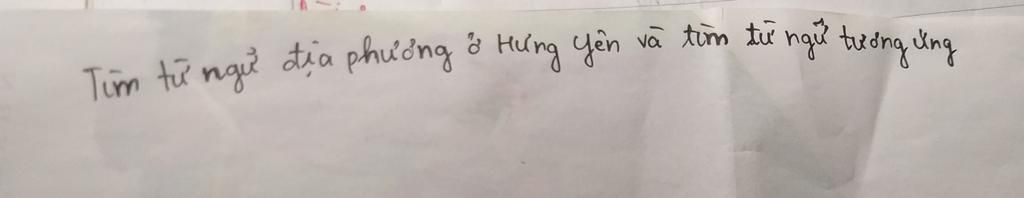 Tìm từ ngữ địa phương ở Hưng Yên và tìm từ ngữ tương ứng